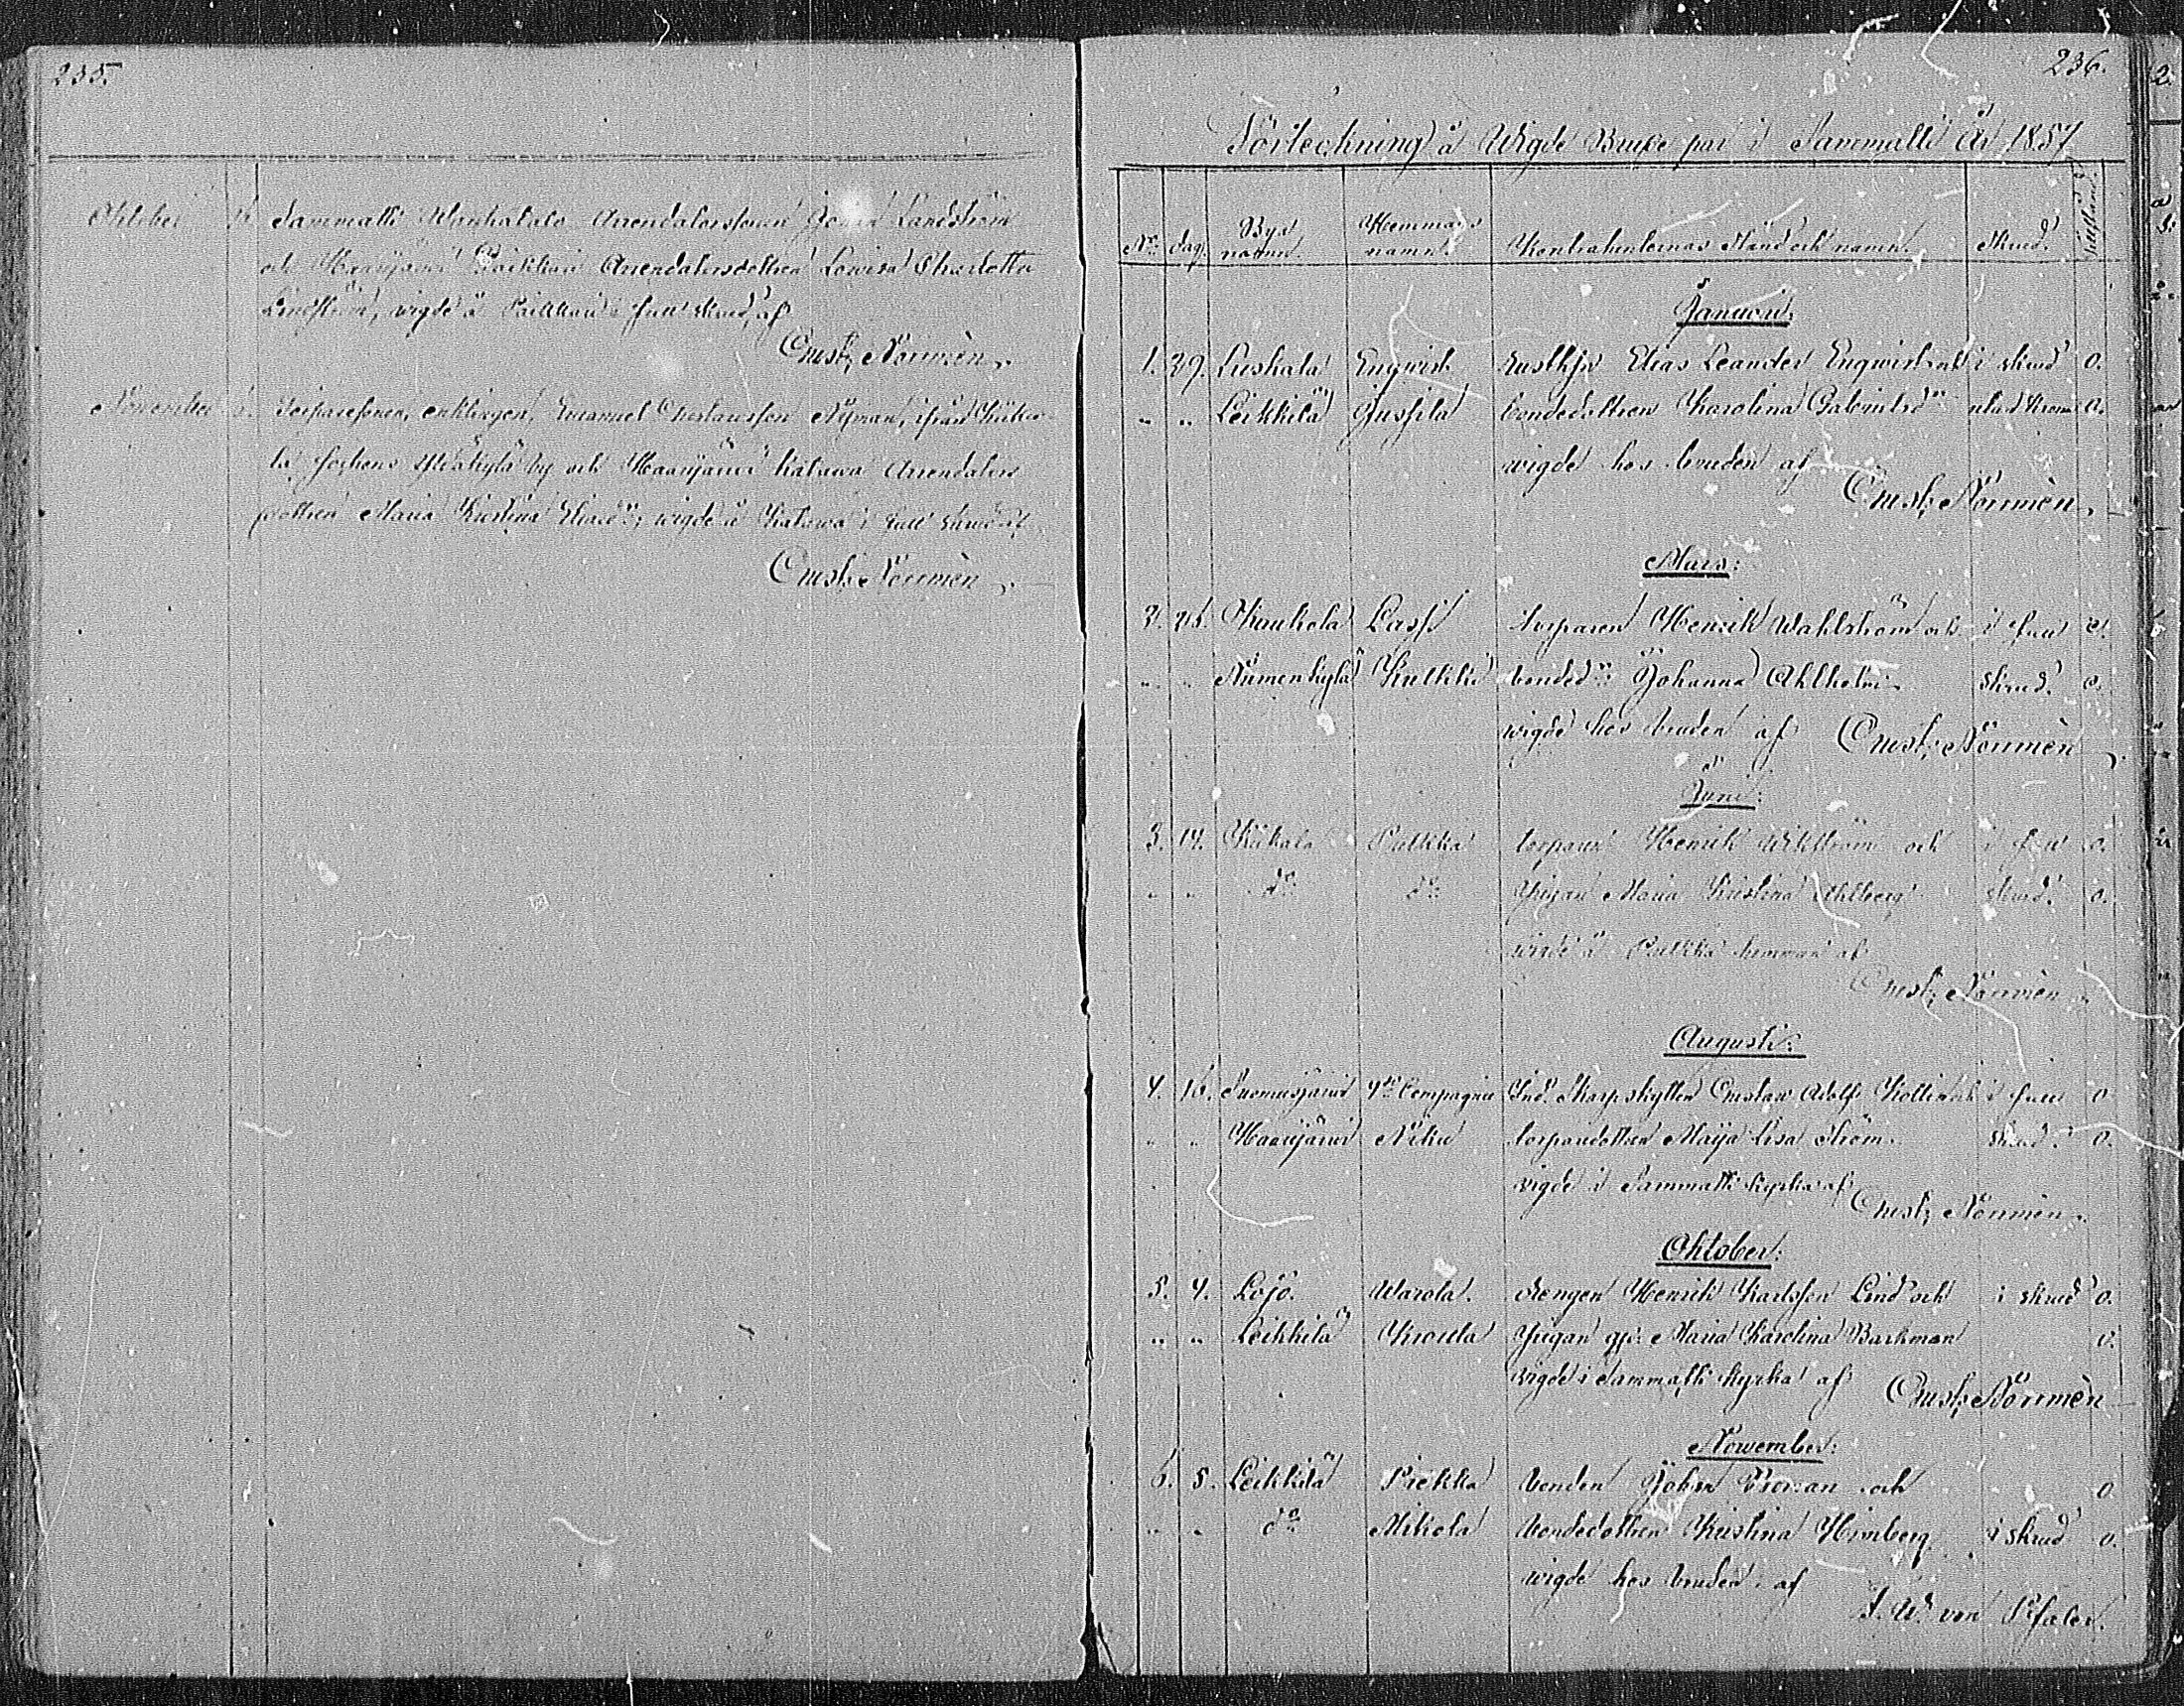 235.
Oktober Sammatti Wanhatalo Arrendatorssonen Johan Landström
och Haarijärwi Paikkari Arrendatorsdottren Lowisa Charlotta
Lindström, wigde å Paikkari i full skrud, af
Gust. Norrmèn.
November enklingen, Emanuel Gustawsson Nyman, ifrån
la sockens by och Haarijärwi Kaluwa Arrendators
dottren Maria Kristina wigde å Kaluwa i full skrud af
Gust. Norrmèn.
236.
Förteckning å Wigde Brude par i Sammatti År 1857
No. Dag. Byns namn. Hemmans namn. Kontrahenternas stånd och namn. Skrud.
Januari:
1. 29. Luskala Engwist Elias Leander Engwist och i skrud 0.
" " Leikkilä Jussila bondedottren Karolina utan krona 0.
wigde hos bruden af
Gust. Norrmèn.
Mars:
2. Kaukola Lassi torparen Henrik Wahlström och i full 0.
" " Niemenkylä bonded:r Johanna Ahlholm. skrud. 0.
wigde hos bruden af Gust. Norrmèn
Juni:
3. 14. Kiikala torparen Henrik Wikström och i full 0.
" " do do Pigan Maria Kristina Ahlberg skrud. 0.
hemman af
Gust. Norrmèn
Augusti:
4. 16. Suomusjärwi Compagnie Ind. Skarpskytten Gustaw Adolf och i full 0
" " Haarijärwi torparedottren Maija Lisa Ström. skrud. 0.
wigde i Sammatti kyrka af
Gust. Norrmèn.
Oktober:
5. 4. Lojo. Warola. drengen Henrik Karlsson Lind och i skrud 0.
" " Leikkilä Kroula Pigan Maria Karolina Barkman 0.
wigde i Sammatti kyrka af Gust. Norrmèn
November:
6. 5. Leikkilä Piekka bonden Johan och 0
" " do Mikola bondedottren Kristina Himberg i skrud 0.
wigde hos bruden af
F. W. von Pfaler.